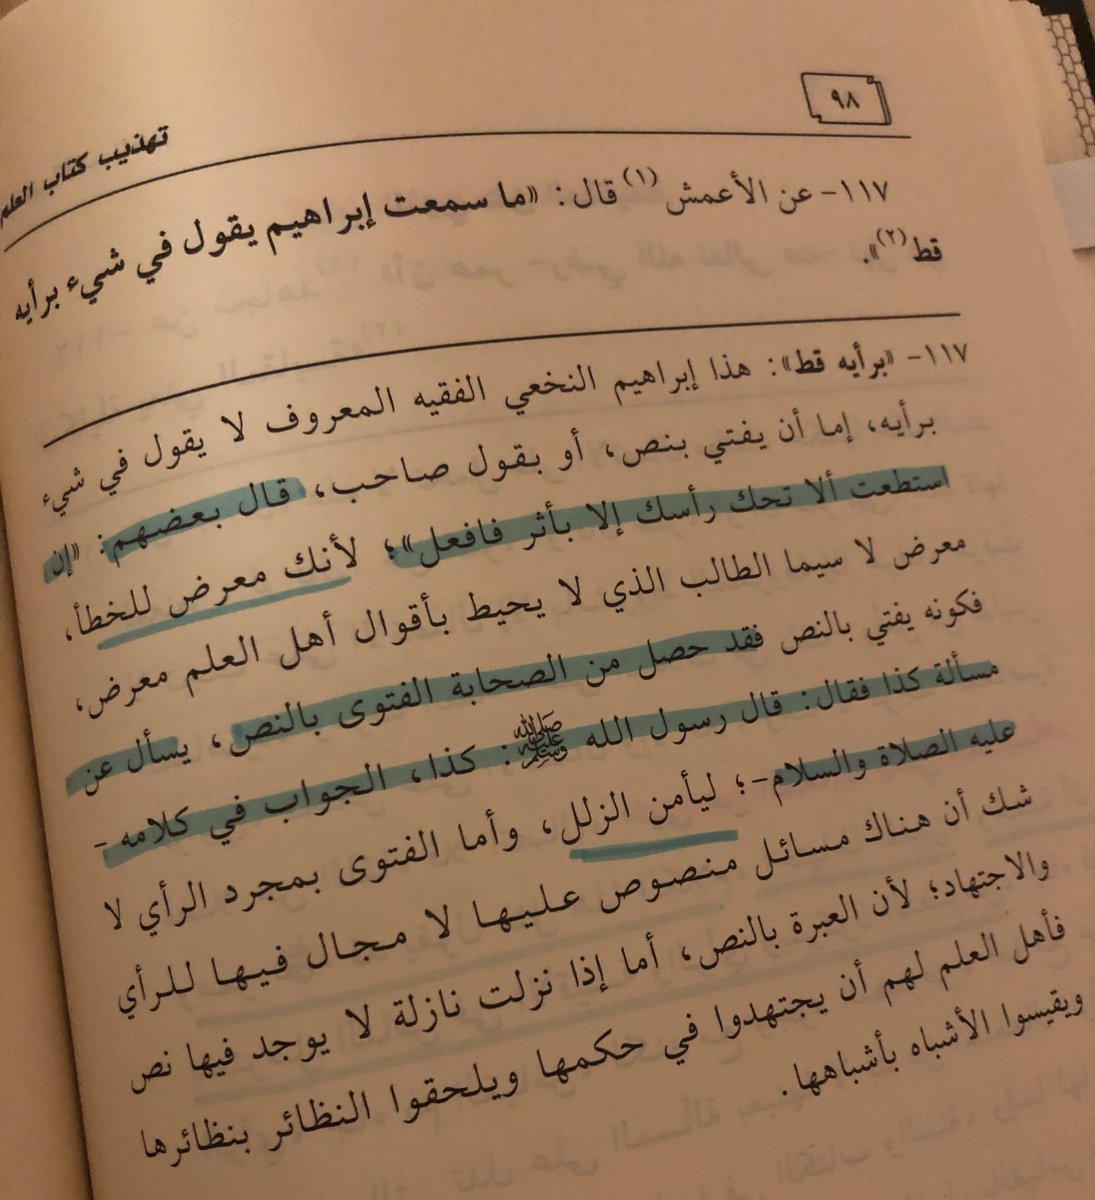 ٩٨
تهذيب كتاب العلم
١١٧- عن الأعمش(١) قال: «ما سمعت إبراهيم يقول في شيء برأيه
قط(٢)».
١١٧- «برأيه قط»: هذا إبراهيم النخعي الفقيه المعروف لا يقول في شيء
برأيه، إما أن يفتي بنص، أو بقول صاحب، قال بعضهم: «إن
استطعت ألا تحك رأسك إلا بأثر فافعل»؛ لأنك معرض للخطأ،
معرض لا سيما الطالب الذي لا يحيط بأقوال أهل العلم معرض،
فكونه يفتي بالنص فقد حصل من الصحابة الفتوى بالنص، يسأل عن
مسألة كذا فقال: قال رسول الله ﷺ: كذا، الجواب في كلامه -
عليه الصلاة والسلام-؛ ليأمن الزلل، وأما الفتوى بمجرد الرأي لا
شك أن هناك مسائل منصوص عليها لا مجال فيها للرأي
والاجتهاد؛ لأن العبرة بالنص، أما إذا نزلت نازلة لا يوجد فيها نص
فأهل العلم لهم أن يجتهدوا في حكمها ويلحقوا النظائر بنظائرها
ويقيسوا الأشباه بأشباهها.